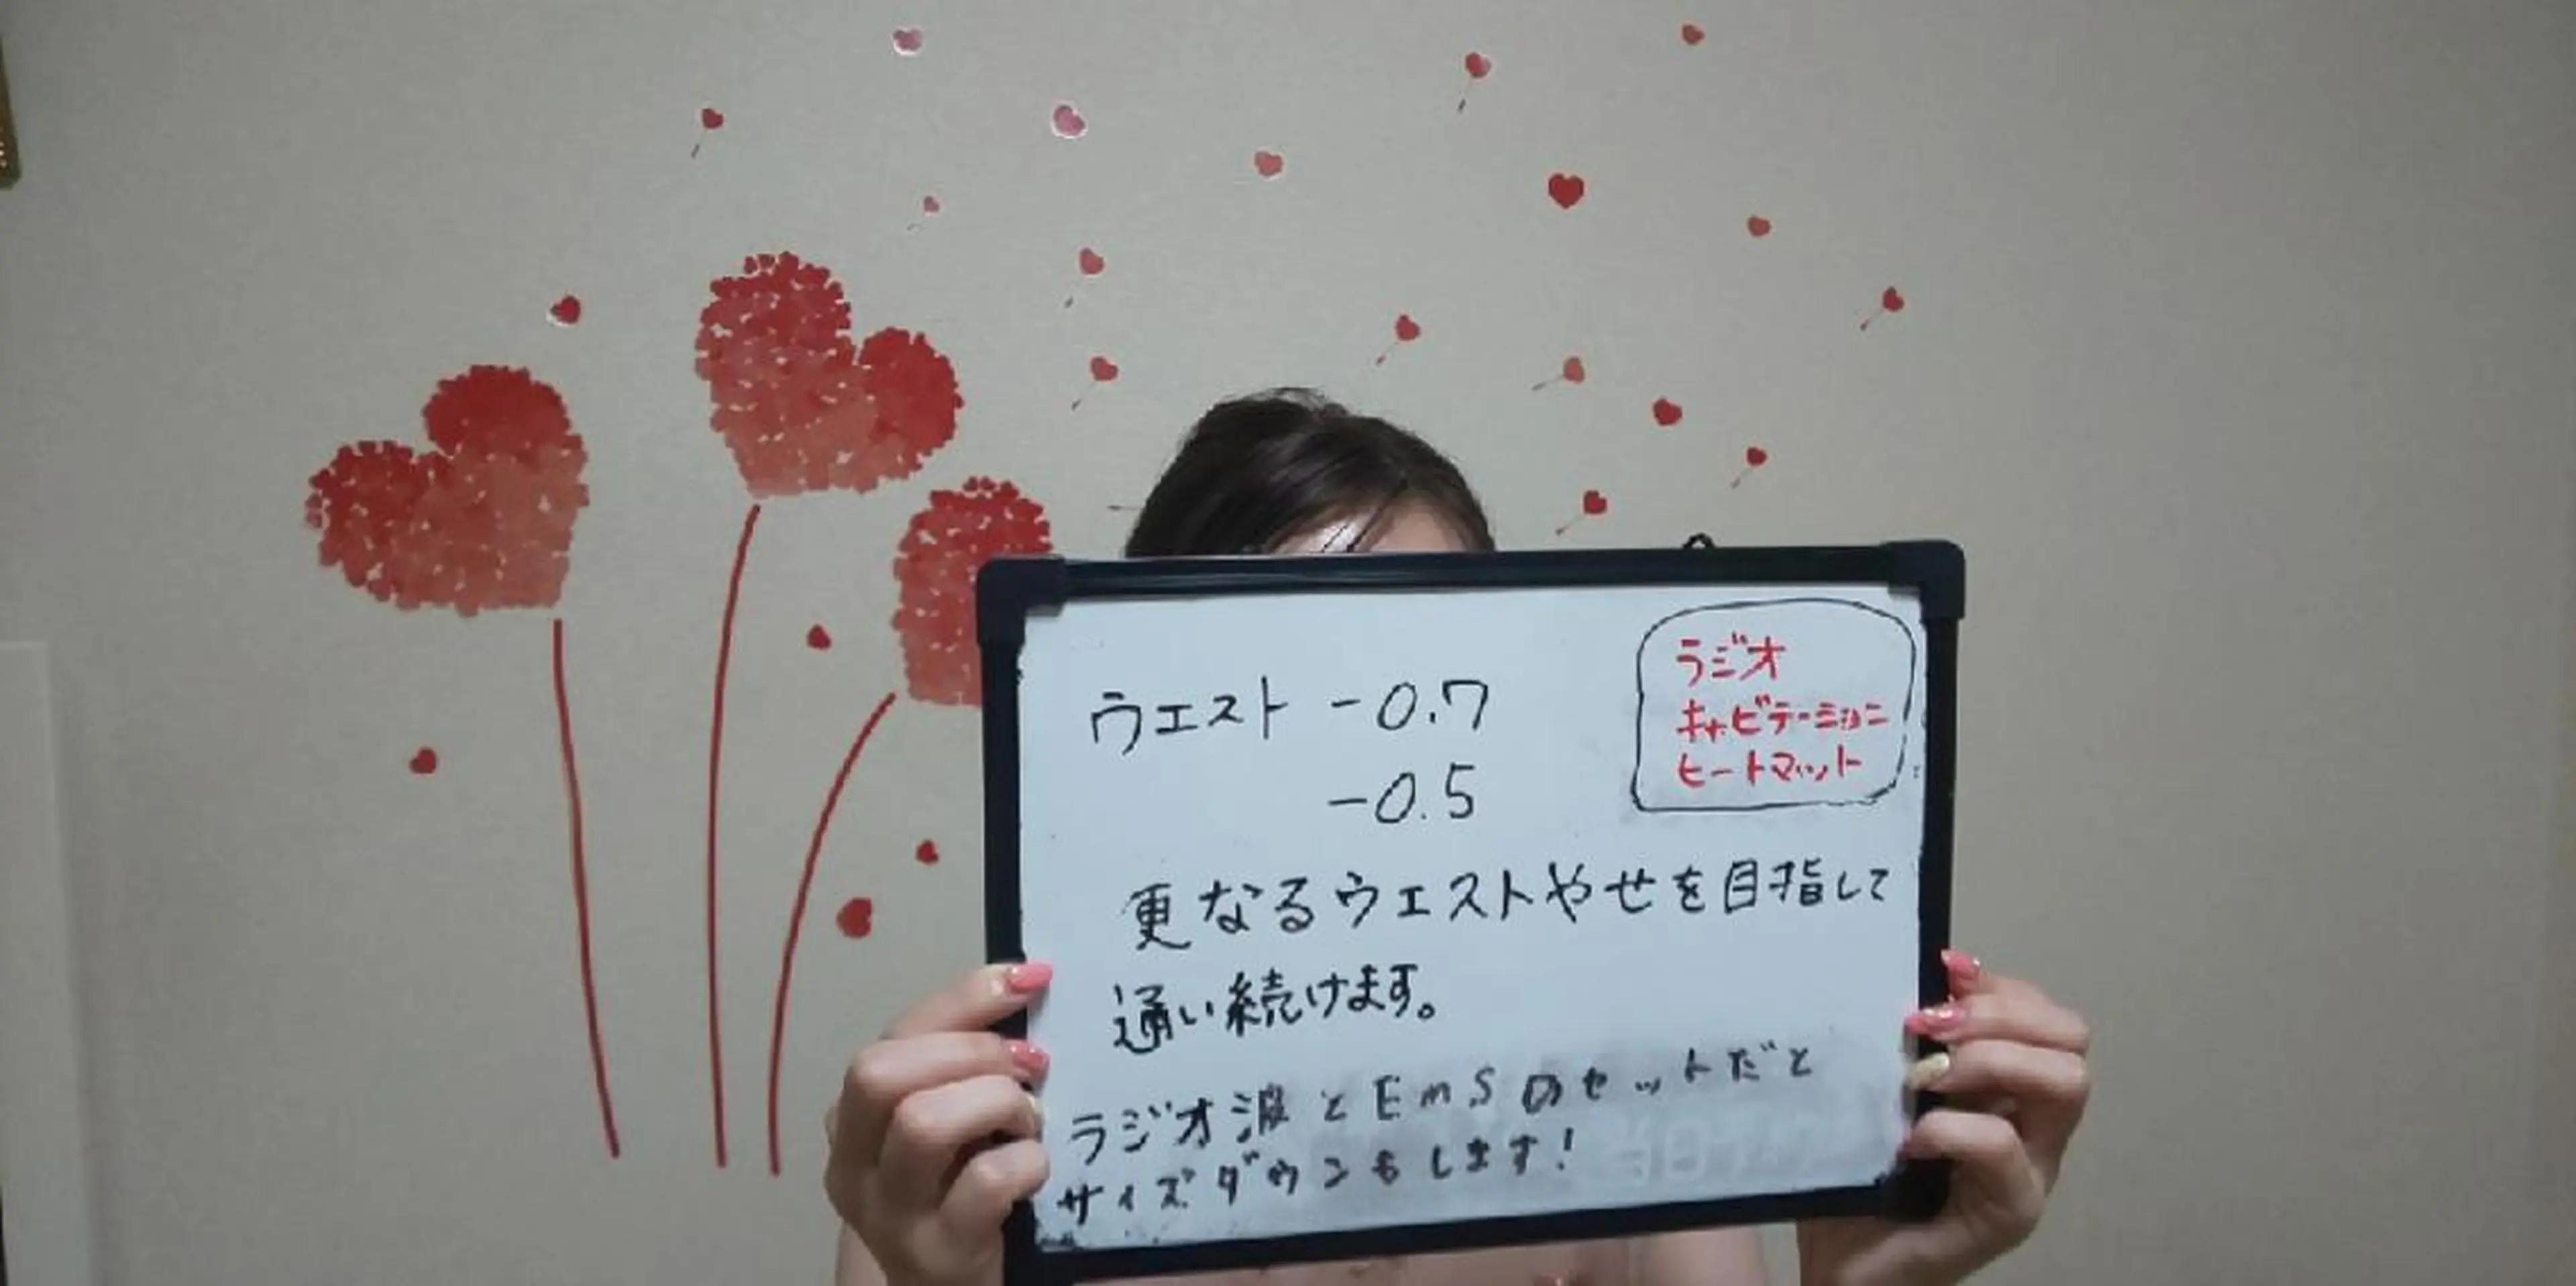 ウエスト -0.7
-0.5
ラジオ
キャビテーション
ヒートマット
更なるウエストやせを目指して
通い続けます。
ラジオ波とEmSのセットだと
サイズダウンもします!